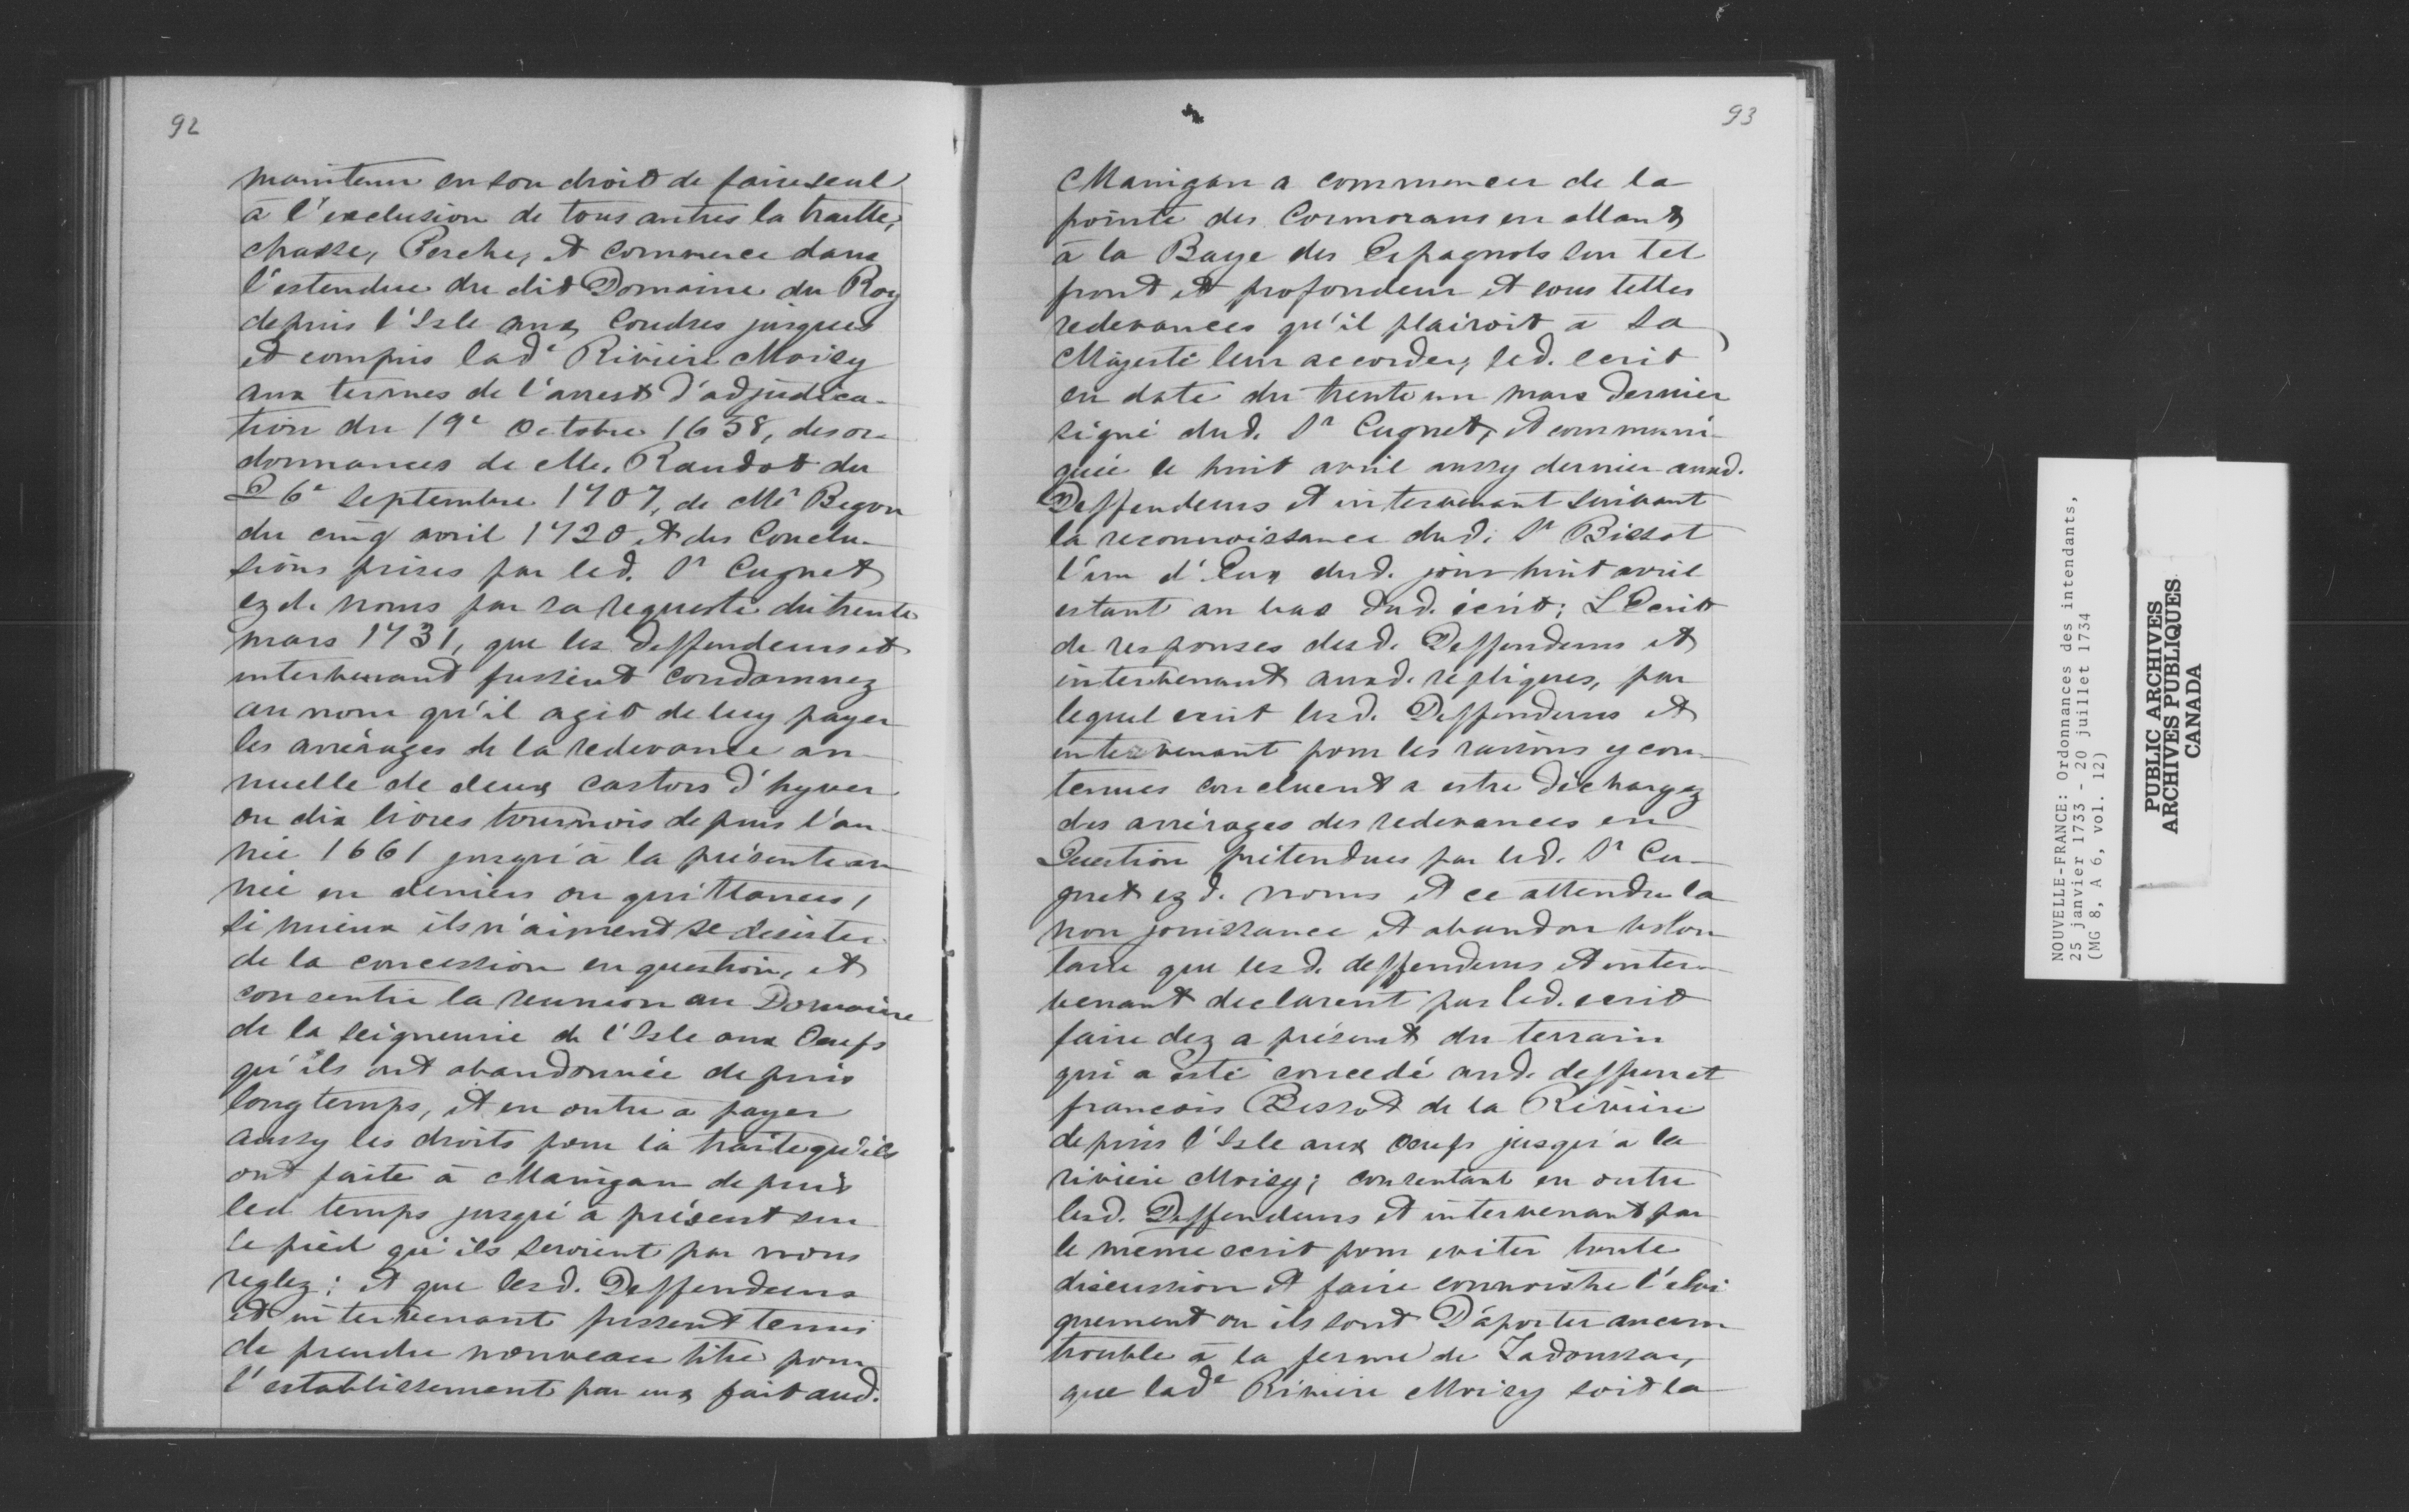 92
maintenu en son droit de faire seul
à l'exclusion de tous autres la traitte,
chasse, Pesche, et commerce dans
l'estendue du dit Domaine du Roy
depuis l'Isle aux Coudres jusques
et compris lad.e Rivière Moisy
aux termes de l'arrest d'adjudica-
tion du 19e Octobre 1658, des or-
donnances de Mr. Raudot du
26e Septembre 1707, de Mr Begon
du cinq avril 1720 et des Conclu-
sions prises par led. Sr Cugnet
ez d. noms par sa requeste du trente
mars 1731, que les deffendeurs et
intervenant fussent condamnez
au nom qu'il agit de luy payer
les arrérages de la redevance an-
nuelle de deux castors d'hyver
ou dix livres tournois depuis l'an-
née 1661 jusqu'à la présente an-
née en deniers ou quittances,
si mieux ils n'aiment se desister
de la concession en question, et
consentir la reunion au Domaine
de la seigneurie de l'Isle aux Oeufs
qu'ils ont abandonnée depuis
longtemps, et en outre a payer
aussy les droits pour la traite qu'ils
ont faite à Maingan depuis
led temps jusqu'à présent sur
le pied qu'ils seroient par nous
reglez; et que lesd. Deffendeurs
et intervenant fussent tenus
de prendre nouveau titre pour
l'establissement par eux fait aud.
93
Maingan a commencer de la
pointe des Cormorans en allant
à la Baye des Espagnols sur tel
front et profondeur et sous telles
redevances qu'il plairoit à Sa
Majesté leur accorder, led. ecrit
en date du trente un mars dernier
signé dud. Sr Cugnet, et communi-
quée le huit avril aussy dernier auxd.
Deffendeurs et intervenant suivant
la reconnoissance dud. Sr Bissot
l'un d'Eux dud. jour huit avril
estant au bas dud. écrit; L'Ecrit
de responses desd. Deffendeurs et
intervenant auxd. répliques, par
lequel ecrit lesd. Deffendeurs et
intervenant pour les raisons y con-
tenues concluent a estre déchargez
des arrérages des redevances en
Question prétendues par led. Sr Cu-
gnet ez d. noms et ce attendu la
non jouissance et abandon volon
taire que lesd. deffendeurs et inter-
venant declarent par led. ecrit
faire dez a présent du terrain
qui a esté concedé aud. deffunct
francois Bissot de la Rivière
depuis l'Isle aux Oeufs jusqu'a la
rivière Moisy; consentant en outre
lesd. Deffendeurs et intervenant par
le même ecrit pour eviter toute
discussion et faire connoistre l'eloi
gnement ou ils sont D'aporter aucun
trouble à la ferme de Tadoussac,
que lade Rivière Moisy soit la
NOUVELLE-FRANCE: Ordonnances des intendants,
25 janvier 1733 - 20 juillet 1734
(MG 8, A 6, vol. 12)
PUBLIC ARCHIVES
ARCHIVES PUBLIQUES
CANADA